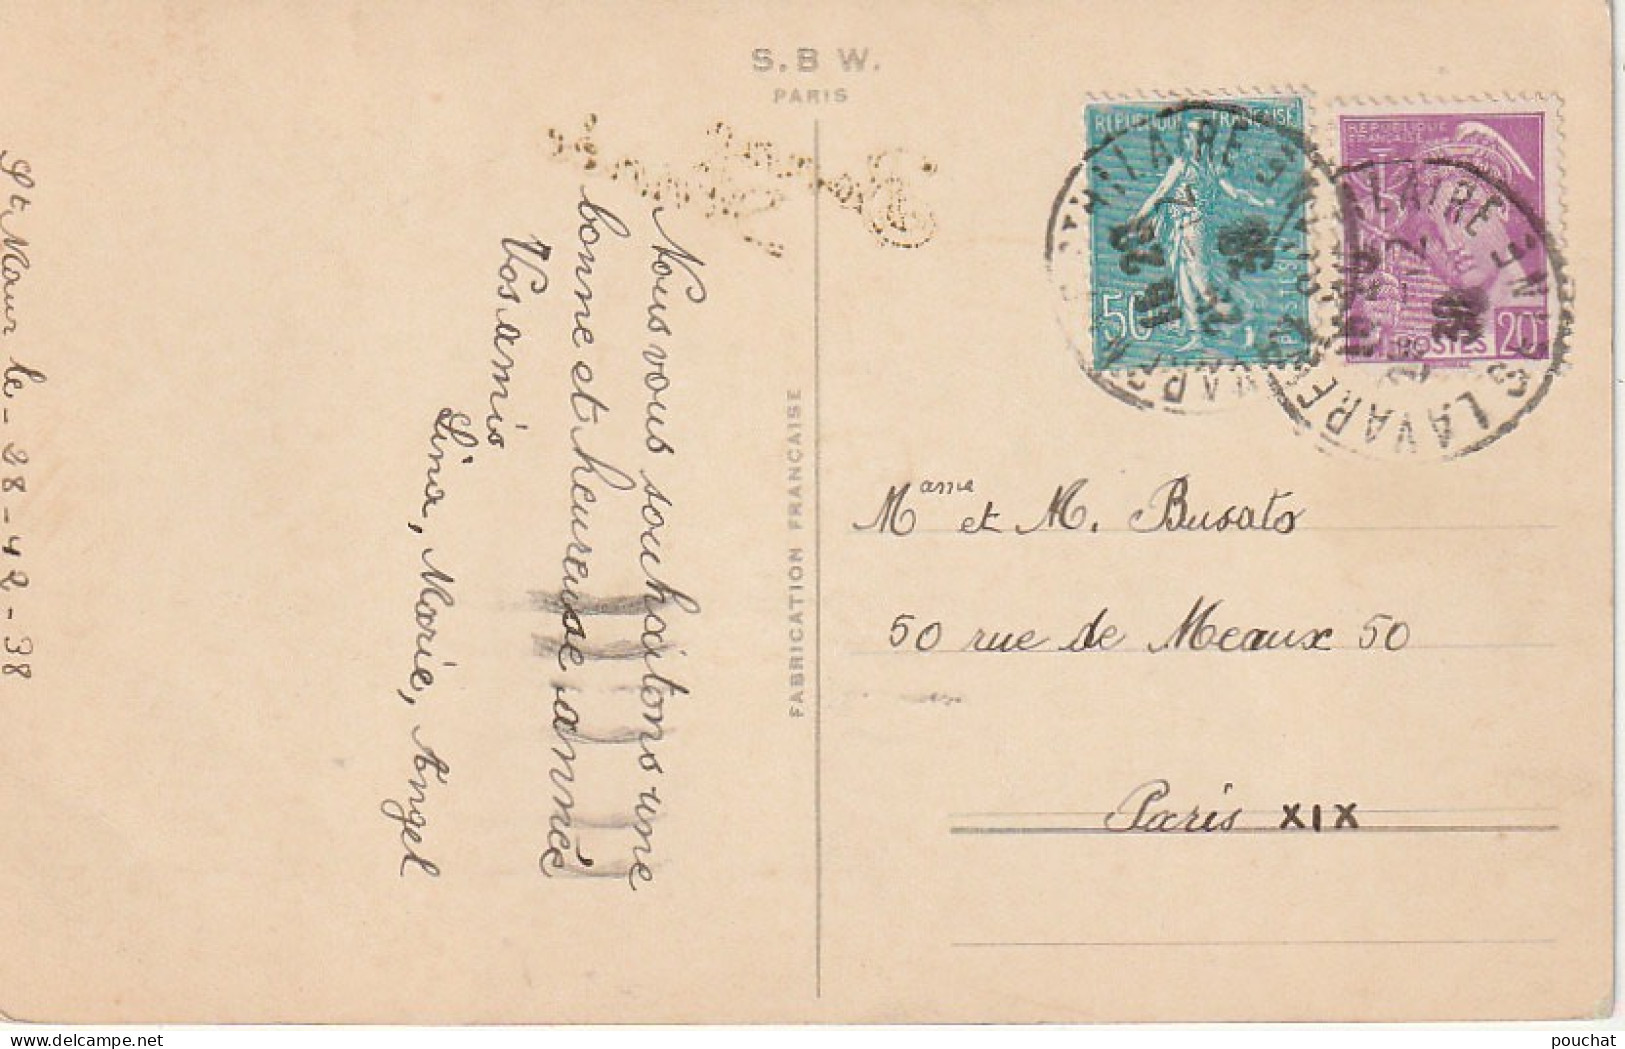 S.B W.
PARIS
Bonne
Année
St Maur le - 28-12-38
Nous vous souhaitons une
bonne et heureuse année
Vos amis
Lina, Marie, Angel
FABRICATION FRANÇAISE
REPUBLIQUE FRANÇAISE
50
REPUBLIQUE
FRANÇAISE
POSTES 20
LA VARENNE
Mame et M. Busato
50 rue de Meaux 50
Paris XIX
pouchat